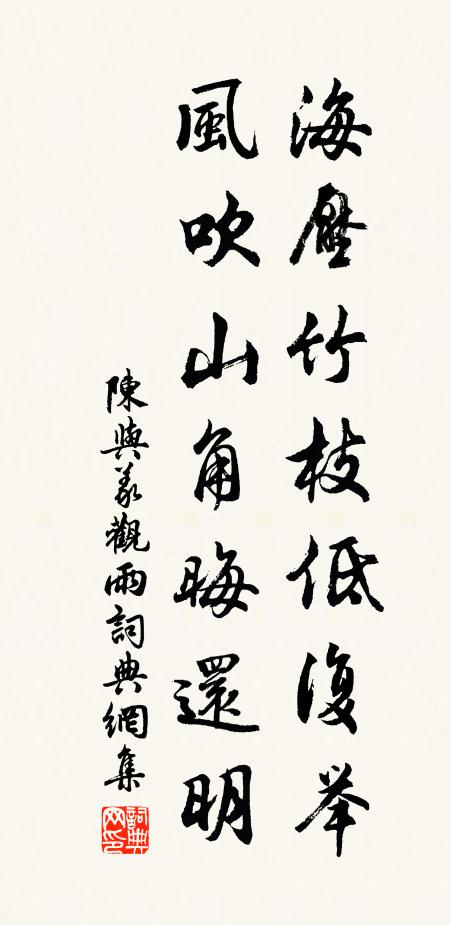 海壓竹枝低復举
風吹山角晦還明
陳與義觀雨詞典網集
詞典網印